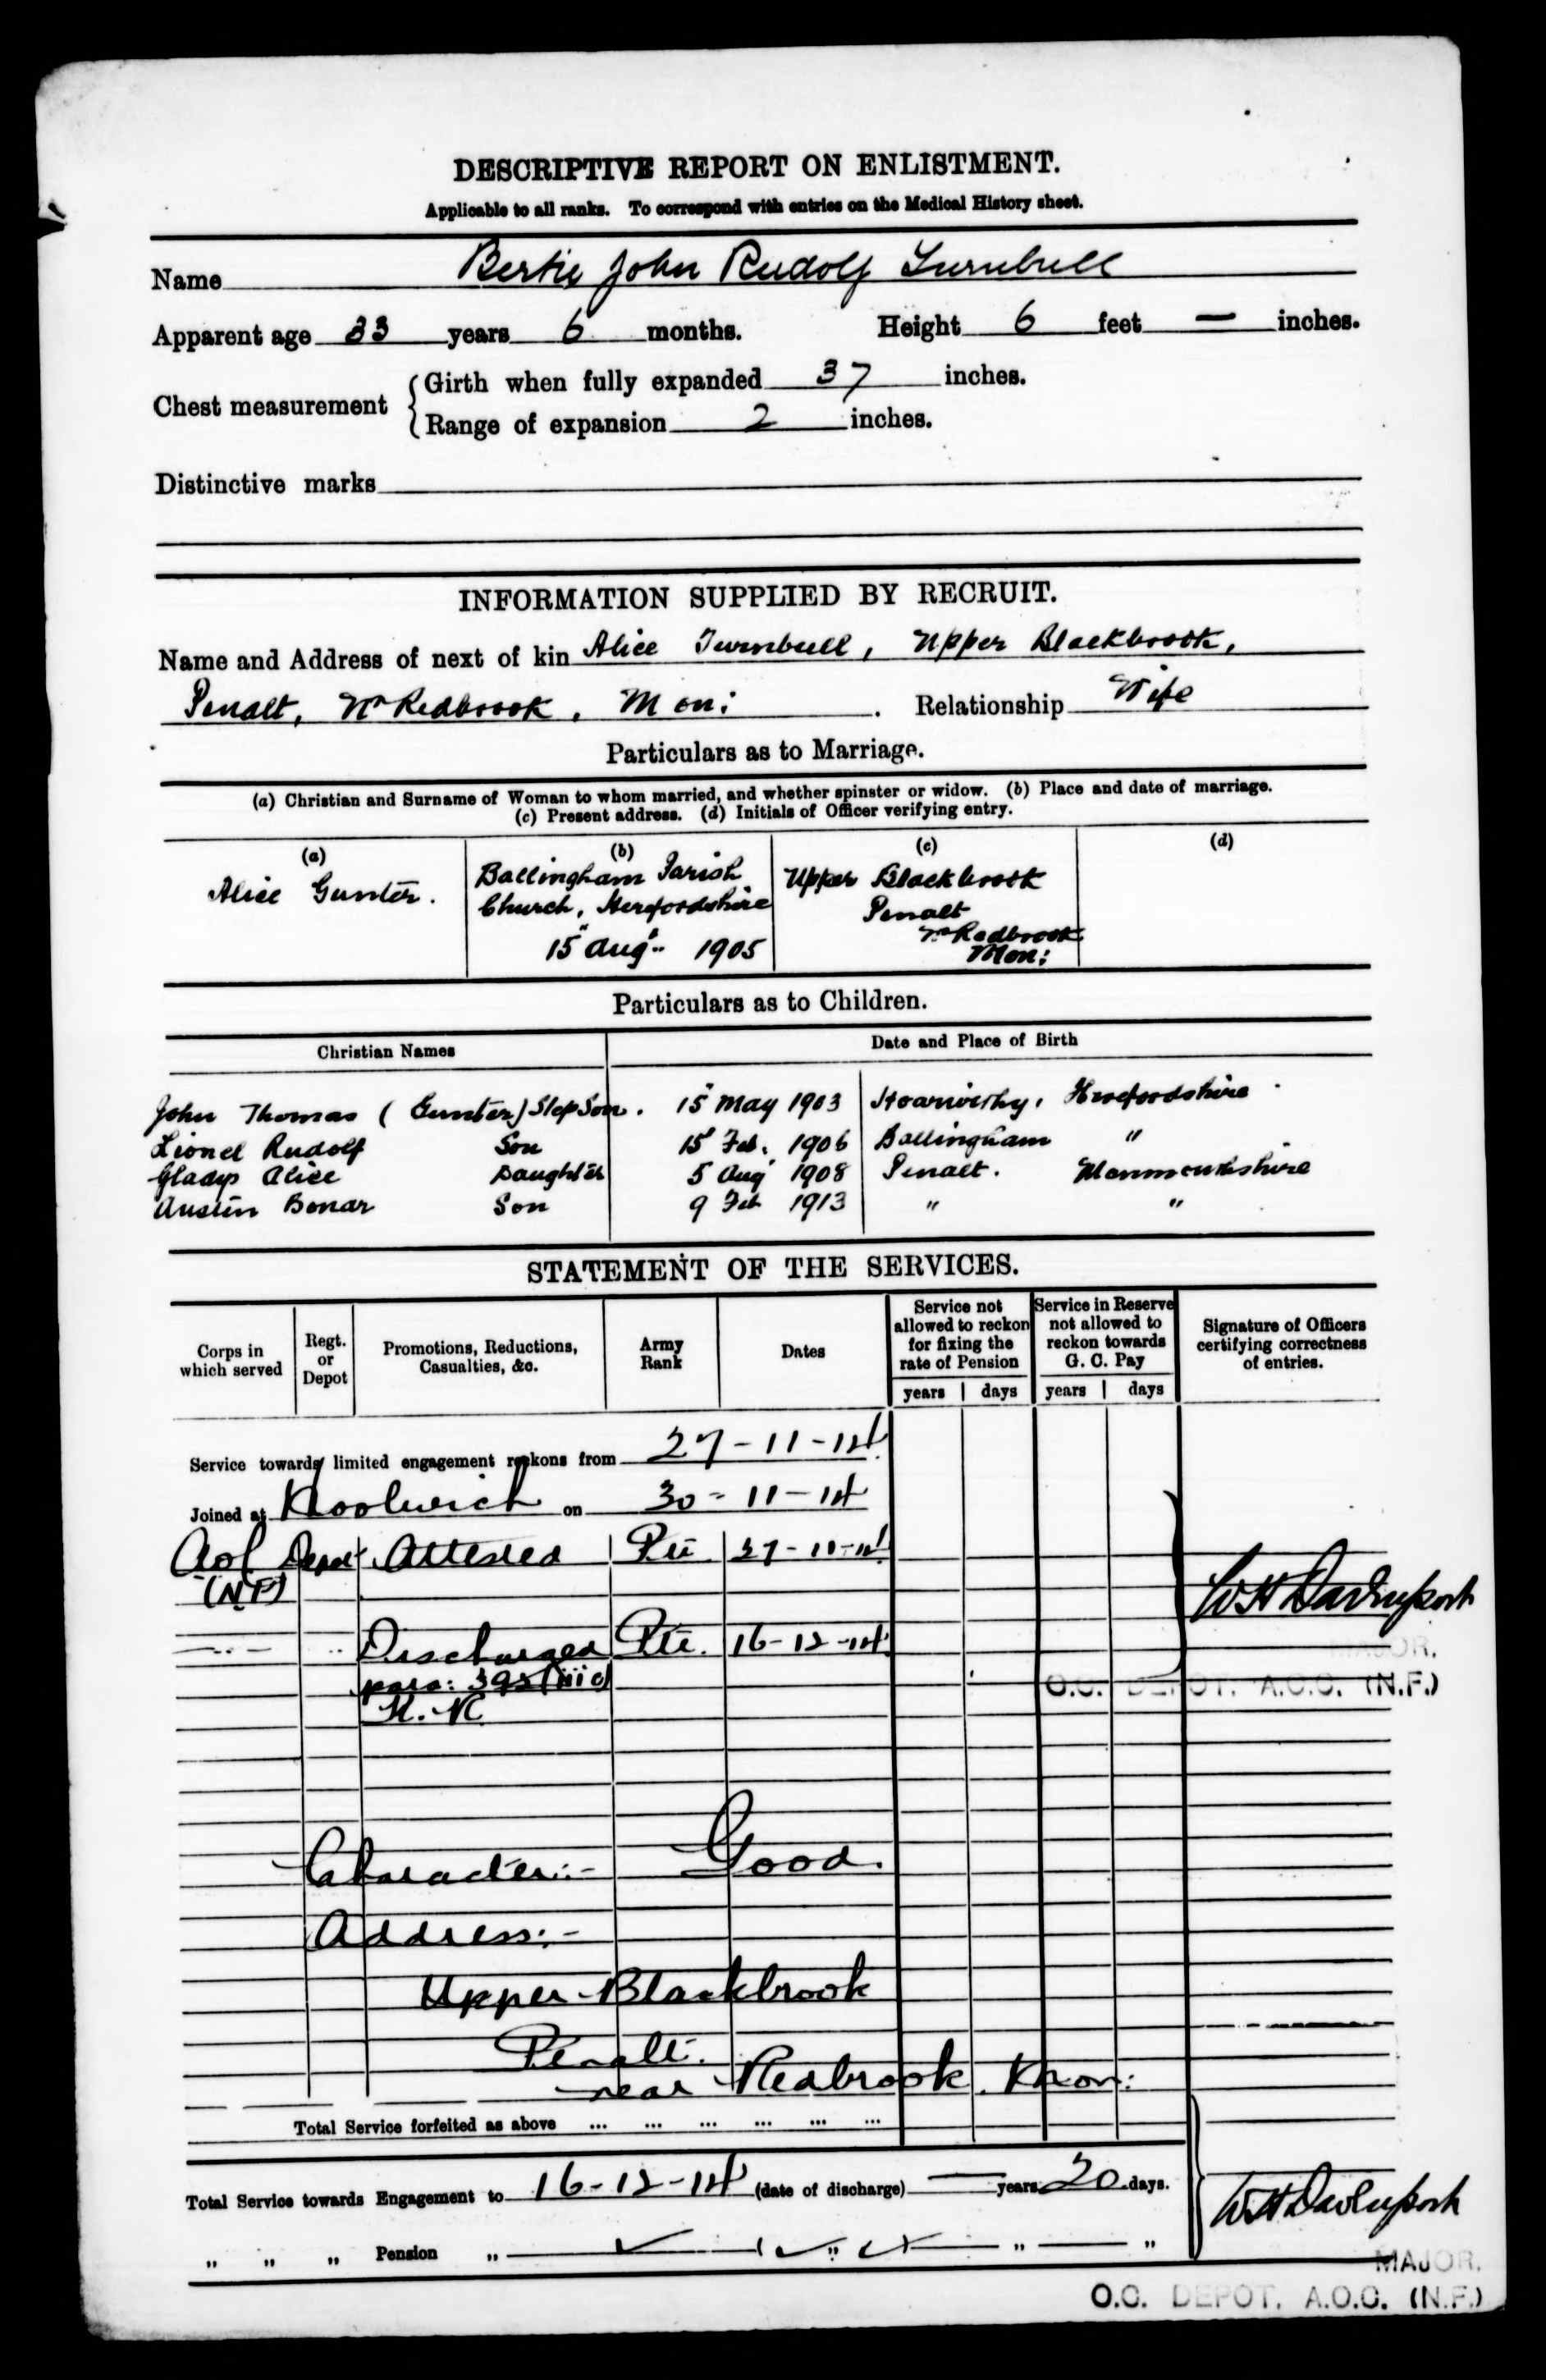 DESCRIPTIVE REPORT ON ENLISTMENT.
Applicable to all ranks. To correspond with entries on the Medical History sheet.
Name Bertie John Rudolf Turnbull
Apparent age 33 years 6 months. Height 6 feet — inches.
Chest measurement { Girth when fully expanded 37 inches.
Range of expansion 2 inches.
Distinctive marks
INFORMATION SUPPLIED BY RECRUIT.
Name and Address of next of kin Alice Turnbull, Upper Blackbrook,
Penalt, Nr Redbrook, Mon: . Relationship Wife
Particulars as to Marriage.
(a) Christian and Surname of Woman to whom married, and whether spinster or widow. (b) Place and date of marriage.
(c) Present address. (d) Initials of Officer verifying entry.
(a) (b) (c) (d)
Alice Gunter. Ballingham Parish Upper Blackbrook
Church, Herefordshire Penalt
15 Aug 1905 Nr Redbrook
Mon:
Particulars as to Children.
Christian Names Date and Place of Birth
John Thomas (Gunter) StepSon. 15 May 1903 Hoarwithy, Herefordshire
Lionel Rudolf Son 15 Feb. 1906 Ballingham "
Gladys Alice Daughter 5 Aug 1908 Penalt. Monmouthshire
Austin Bonar Son 9 Feb 1913 " "
STATEMENT OF THE SERVICES.
Corps in which served Regt. or Depot Promotions, Reductions, Casualties, &c. Army Rank Dates Service not allowed to reckon for fixing the rate of Pension Service in Reserve not allowed to reckon towards G. C. Pay Signature of Officers certifying correctness of entries.
years days years days
Service towards limited engagement reckons from 27-11-14
Joined at Woolwich on 30-11-14
Depot Attested Pte 27-11-14
(NF) W H Davenport
Discharged Pte. 16-12-14 MAJOR.
para: 392 (iii c) O.C. DEPOT. A.O.C. (N.F.)
K.R.
Character:- Good.
Address:-
Upper Blackbrook
Penalt.
near Redbrook. Mon:
Total Service forfeited as above ... ... ... ... ... ...
Total Service towards Engagement to 16-12-14 (date of discharge) — years 20 days.
W H Davenport
" " " Pension " " " "
MAJOR.
O.C. DEPOT. A.O.C. (N.F.)